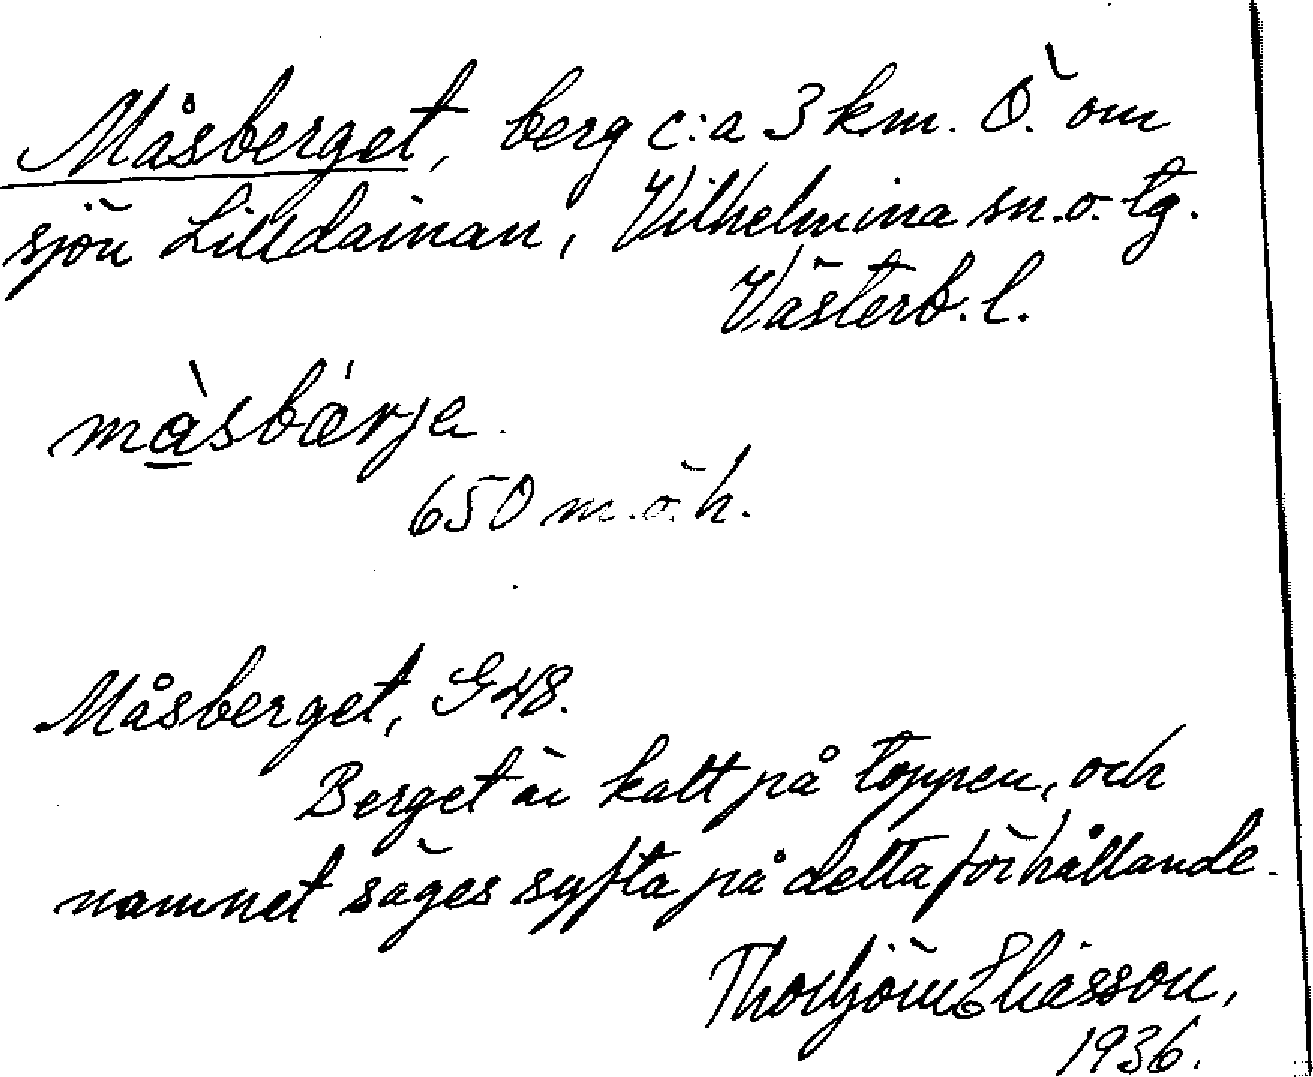 Måsberget, berg c:a 3 km. Ö. om
sjön Lilldainan, Vilhelmina sn. o. tg.
Västerb. l.
må̀sbǽrje
650 m.ö.h.
Måsberget, G 48.
Berget är kalt på toppen, och
namnet säges syfta på detta förhållande.
Thorbjörn Eliasson,
1936.